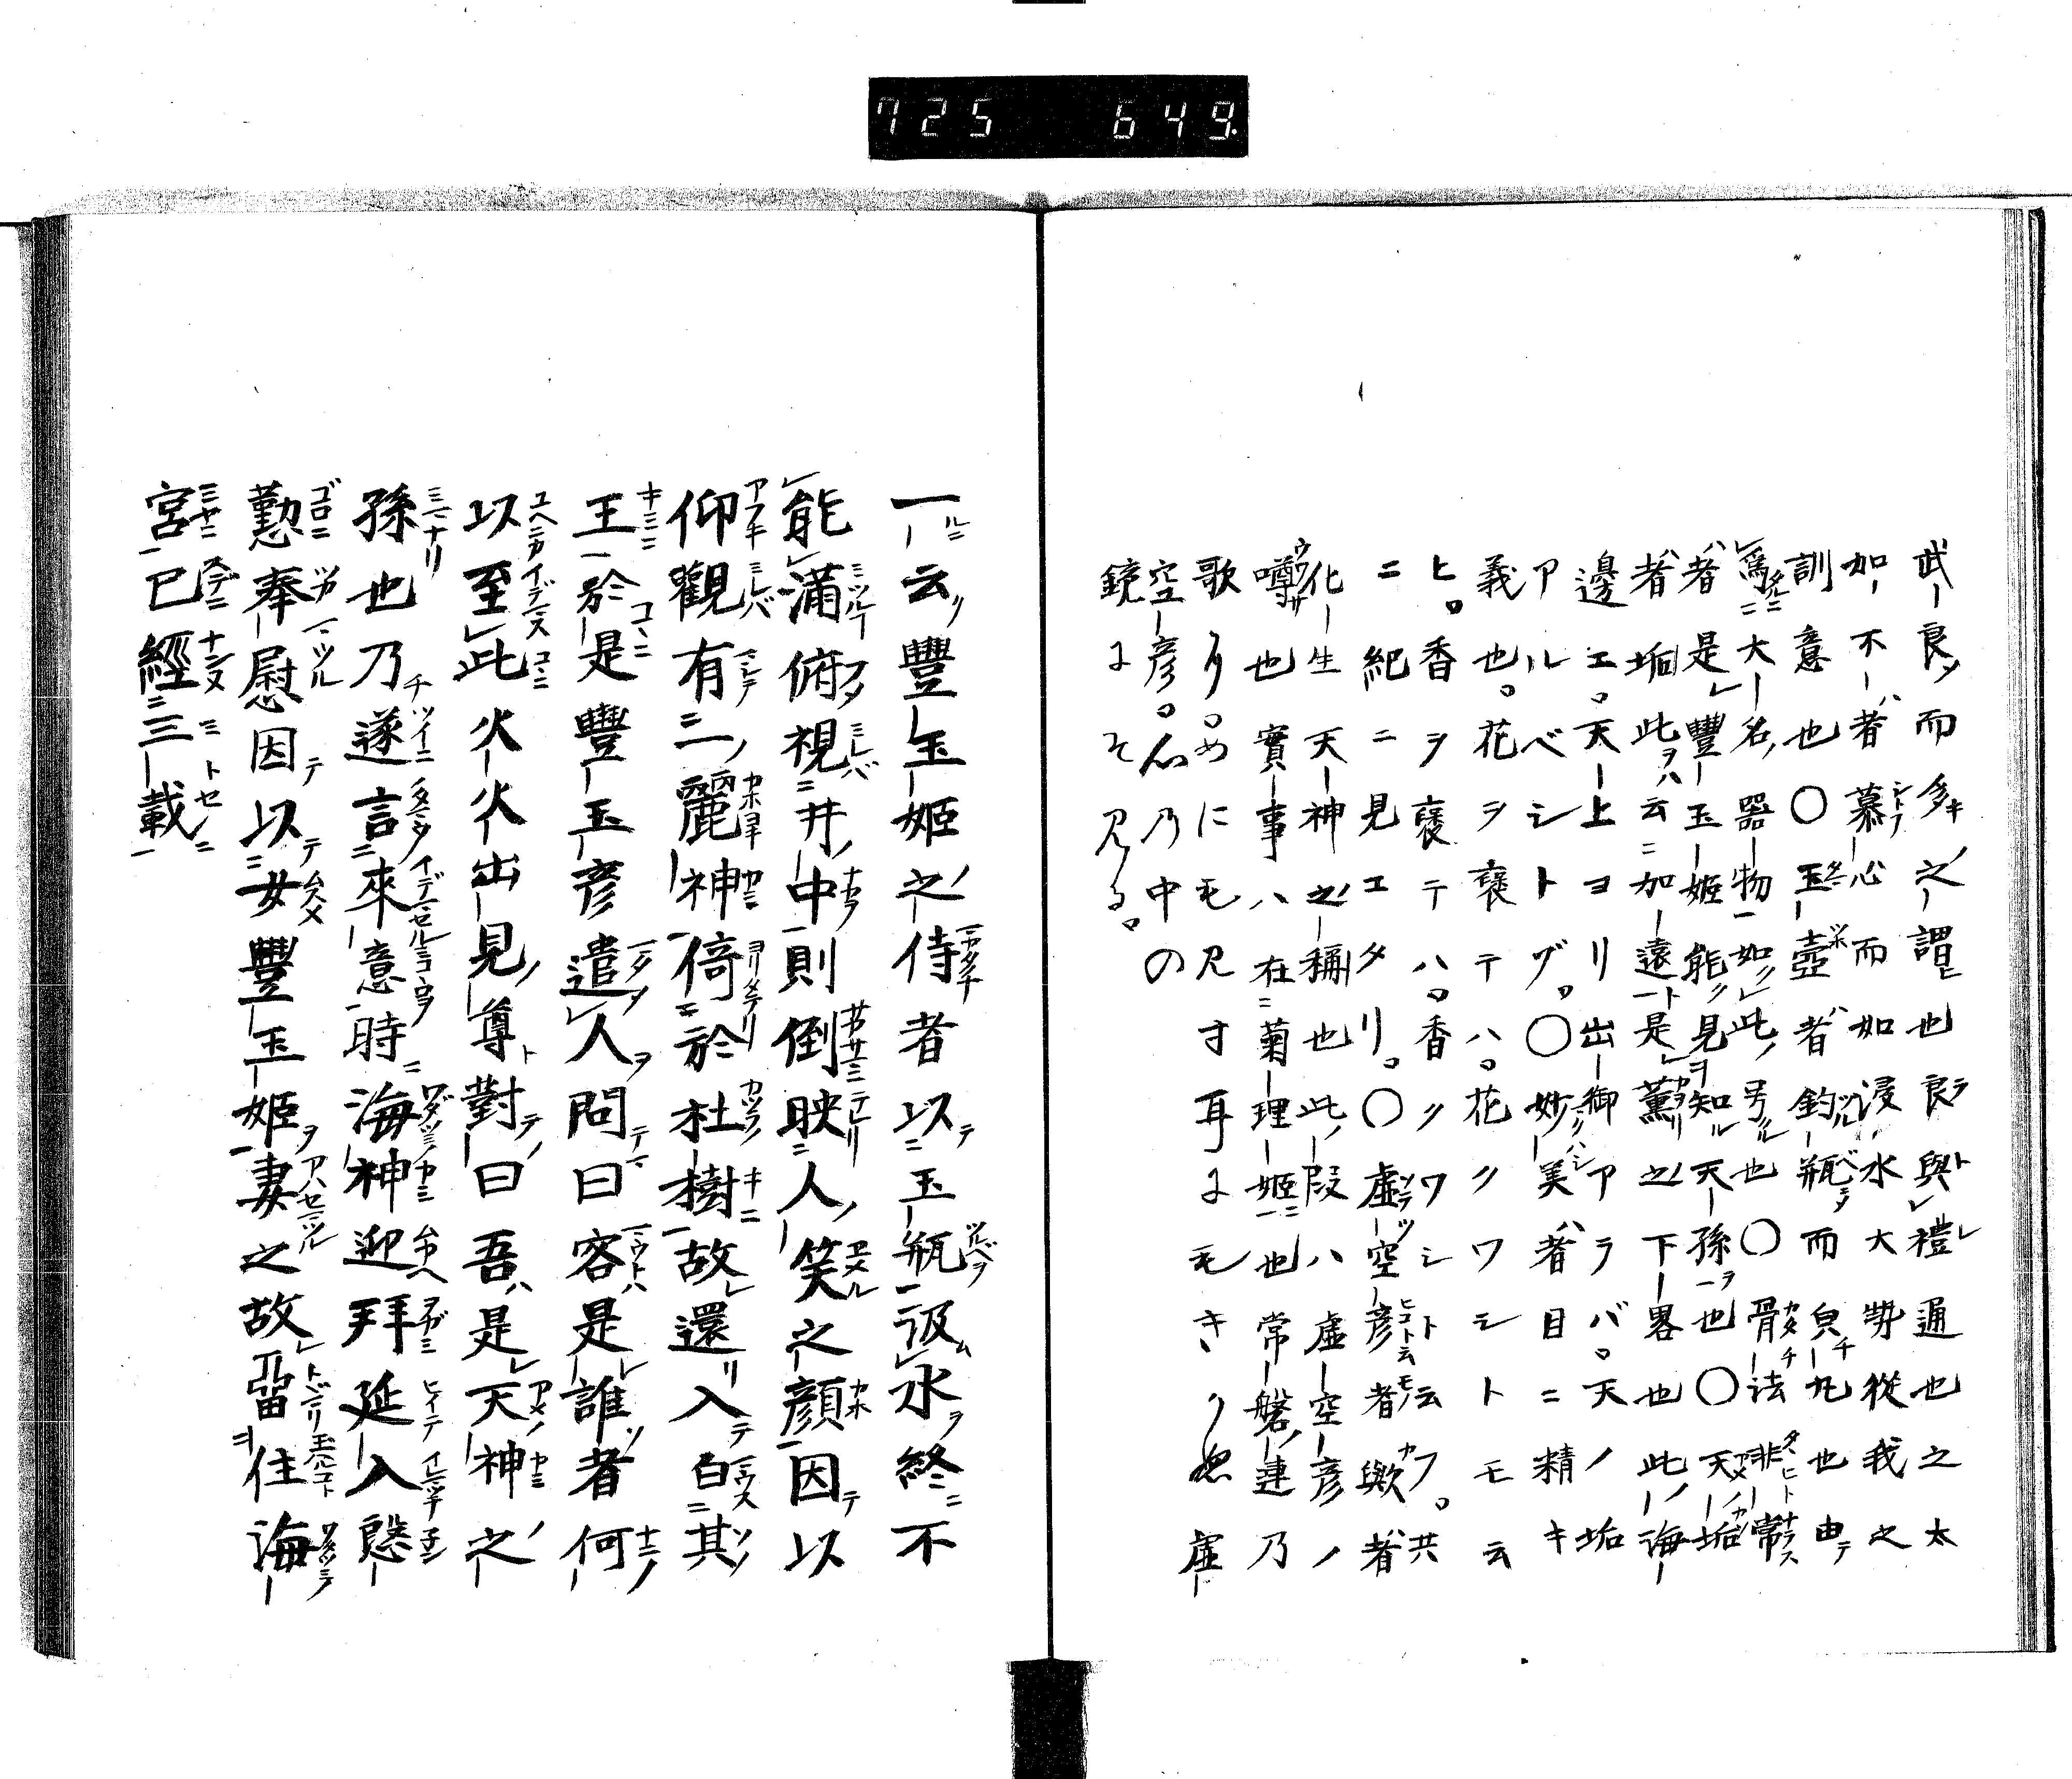 725 649
武良而多之謂也良與禮通也之太
如不者慕心而如浸水大勢從我之
訓意也〇玉壺者釣瓶而皃丸也由
爲大名器物如此号也〇骨法非常
者是豐玉姬能見知天孫也〇天垢
者垢此云加遠是薫之下畧也此海
邊エ。天上ヨリ出御アラバ。天ノ垢
アルベシトゾ。〇妙美者目ニ精キ
義也。花ヲ褒テハ。花クワシトモ云
ヒ。香ヲ褒テハ。香クワシト云フ。共
ニ紀ニ見エタリ。〇虛空彦者歟者
化生天神之稱也此段ハ虛空彦ノ
噂也實事ハ在菊理姬也常磐連乃
歌り。めにモ見す耳よモきく虛
空彦。心乃中の
鏡よそ見る。
一云豐玉姬之侍者以玉瓶汲水終不
能滿俯視井中則倒映人笑之顔因以
仰觀有一麗神倚於杜樹故還入白其
王於是豐玉彦遣人問曰客是誰者何
以至此火火出見尊對曰吾是天神之
孫也乃遂言來意時海神迎拜延入慇
懃奉慰因以女豐玉姬妻之故留住海
宮已經三載